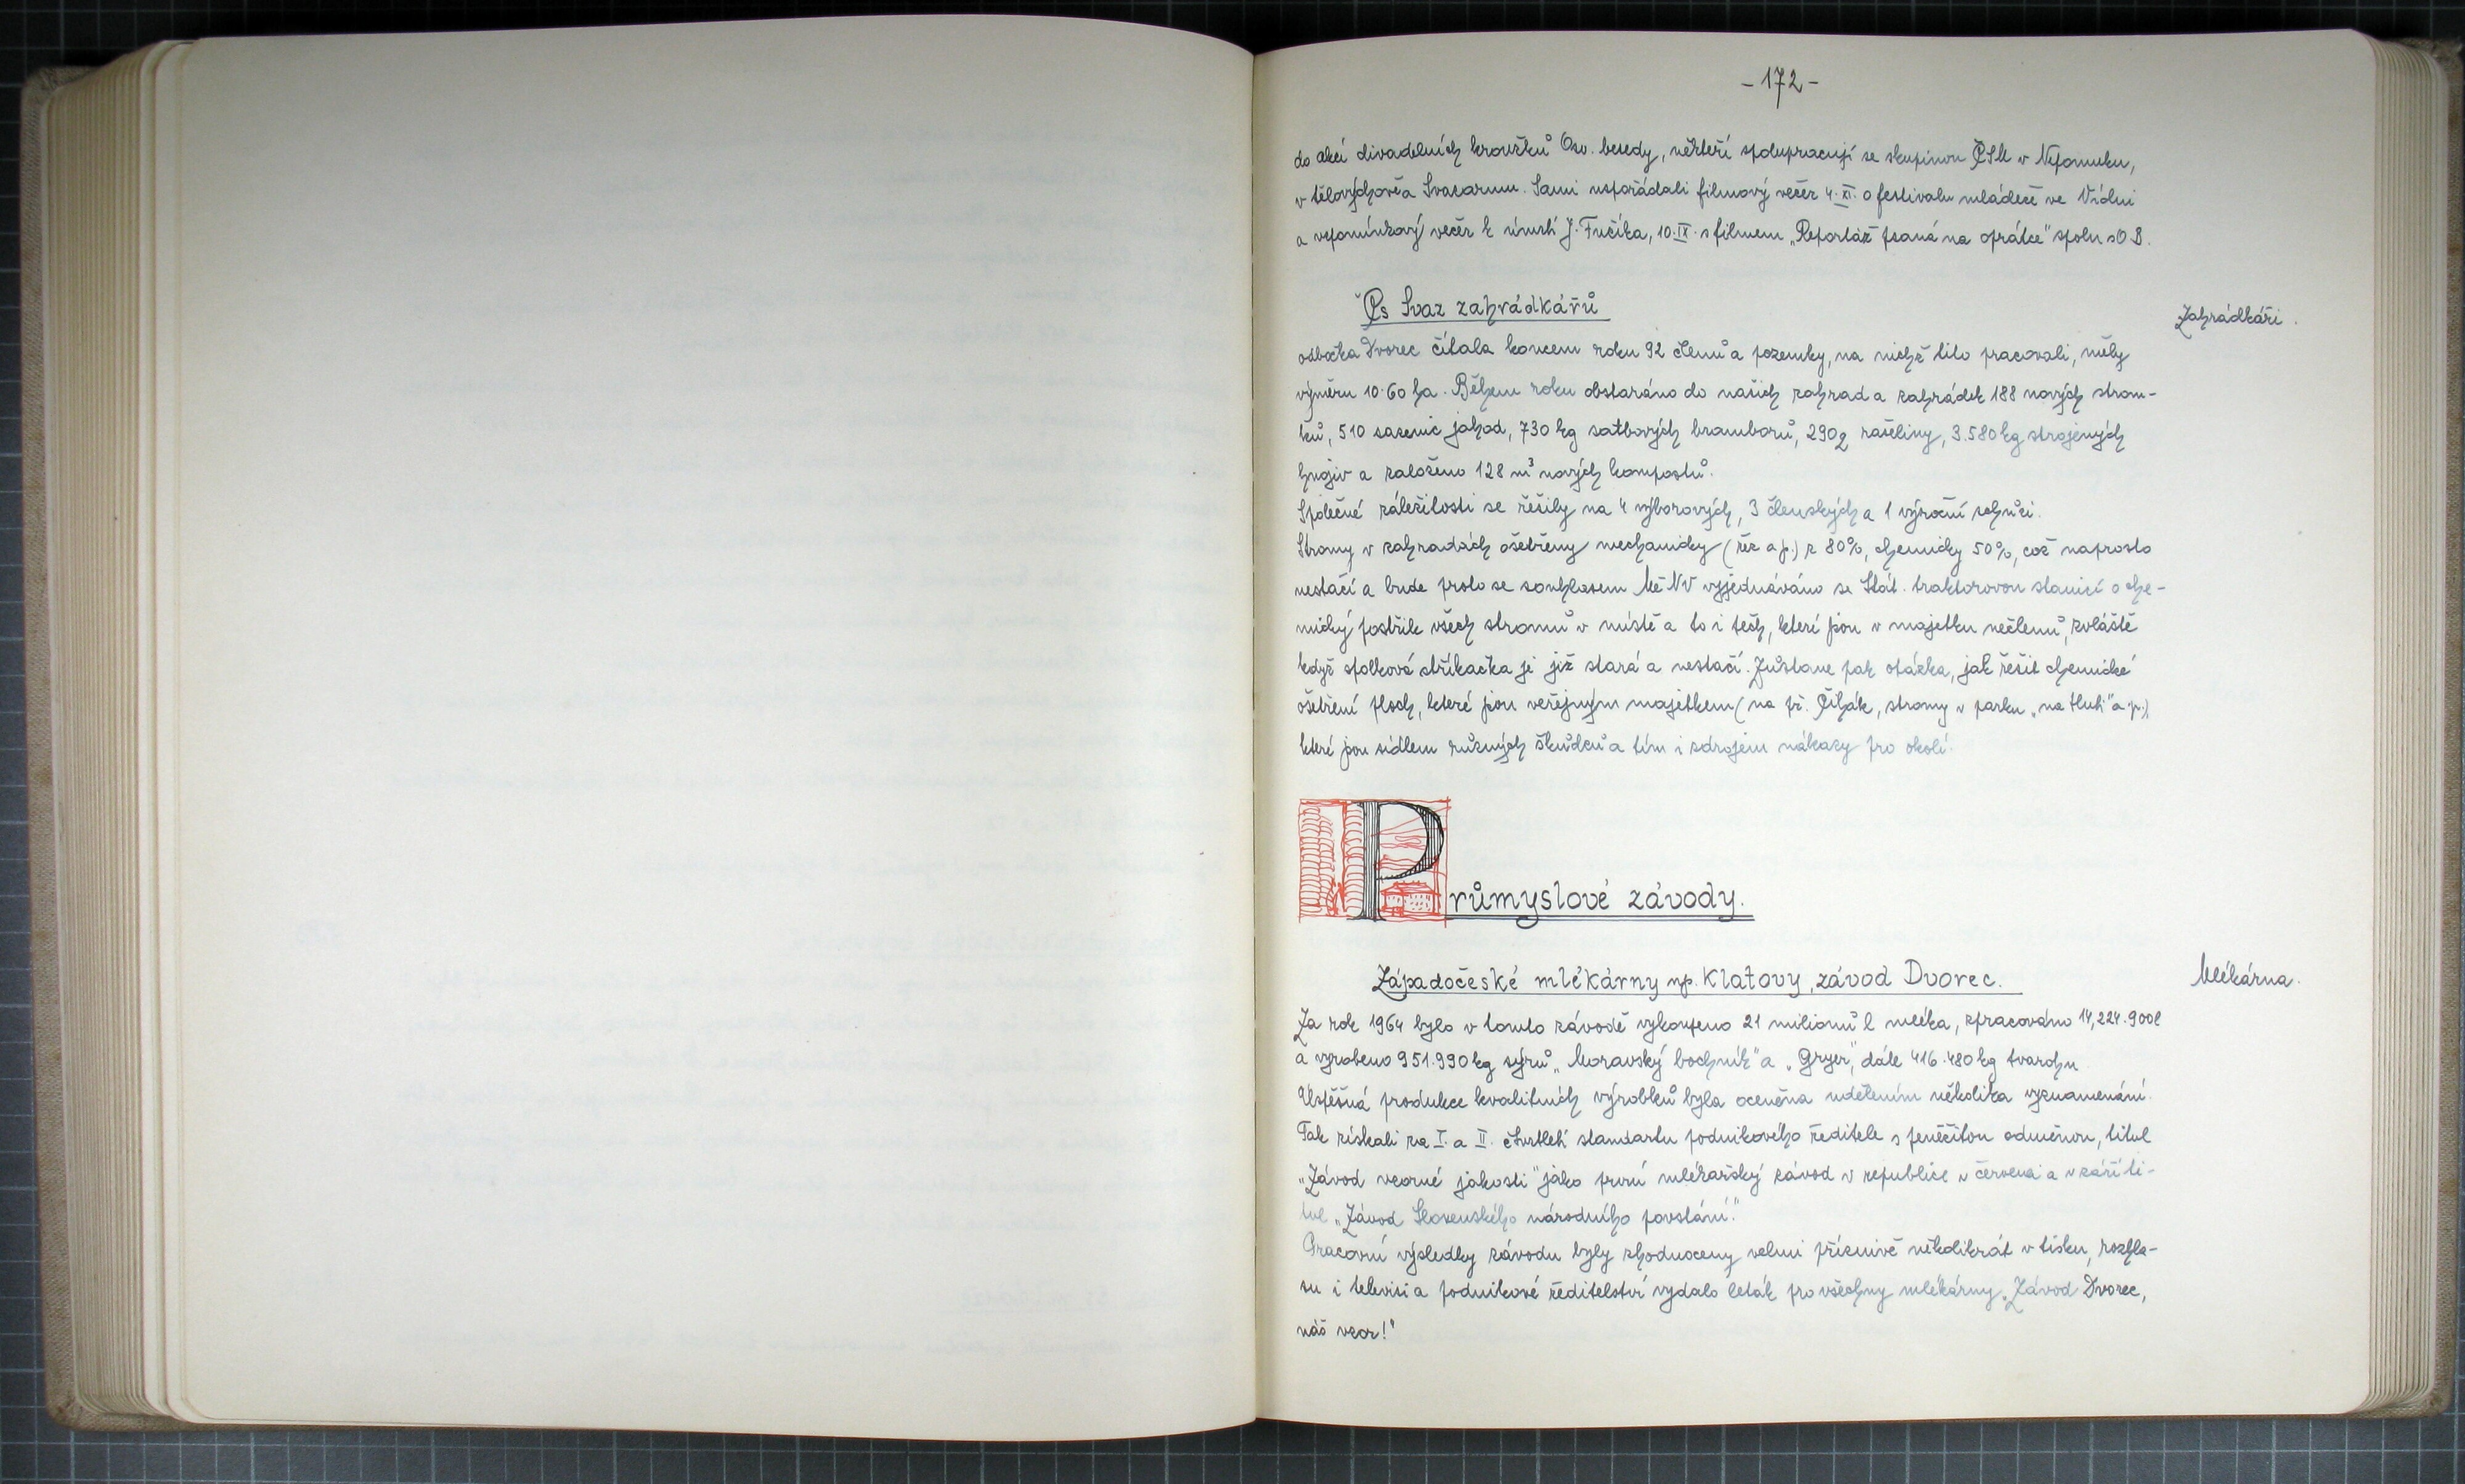 - 172 -
do akcí divadelních kroužků Osv. besedy, někteří spolupracují se skupinou ČSM v Nepomuku,
v tělovýchově a Svazarmu. Sami uspořádali filmový večer 4. XI. o festivalu mládeže ve Vídni
a vzpomínkový večer k úmrtí J. Fučíka, 10. IX. s filmem „Reportáž psaná na oprátce" spolu s O B.
Čs Svaz zahrádkářů
Zahrádkáři.
odbočka Dvorec čítala koncem roku 92 členů a pozemky, na nichž tito pracovali, měly
výměru 10·60 ha. Během roku obstaráno do našich zahrad a zahrádek 188 nových strom-
ků, 510 sazenic jahod, 730 kg satbových bramborů, 290 q rašeliny, 3.580 kg strojených
hnojiv a založeno 128 m³ nových kompostů.
Společné záležitosti se řešily na 4 výborových, 3 členských a 1 výroční schůzi.
Stromy v zahradách ošetřeny mechanicky (řez a p.) z 80%, chemicky 50%, což naprosto
nestačí a bude proto se souhlasem MěNV vyjednáváno se Stát. traktorovou stanicí o che-
mický postřik všech stromů v místě a to i těch, které jsou v majetku nečlenů, zvláště
když spolková stříkačka je již stará a nestačí. Zůstane pak otázka, jak řešit chemické
ošetření ploch, které jsou veřejným majetkem (na př. Čihák, stromy v parku „na tluti" a p.),
které jsou sídlem různých škůdců a tím i zdrojem nákazy pro okolí.
Průmyslové závody.
Západočeské mlékárny np. Klatovy, závod Dvorec.
Mlékárna.
Za rok 1964 bylo v tomto závodě vykoupeno 21 milionů l mléka, zpracováno 14,224.900 l
a vyrobeno 951.990 kg sýrů „Moravský bochník" a „Gryer", dále 416.480 kg tvarohu.
Úspěšná produkce kvalitních výrobků byla oceněna udělením několika vyznamenání.
Tak získali za I. a II. čtvrtletí standartu podnikového ředitele s peněžitou odměnou, titul
„Závod vzorné jakosti" jako první mlékařský závod v republice v červenci a v září ti-
tul „Závod Slovenského národního povstání."
Pracovní výsledky závodu byly zhodnoceny velmi příznivě několikrát v tisku, rozhla-
su i televisi a podnikové ředitelství vydalo leták pro všechny mlékárny „Závod Dvorec,
náš vzor!"